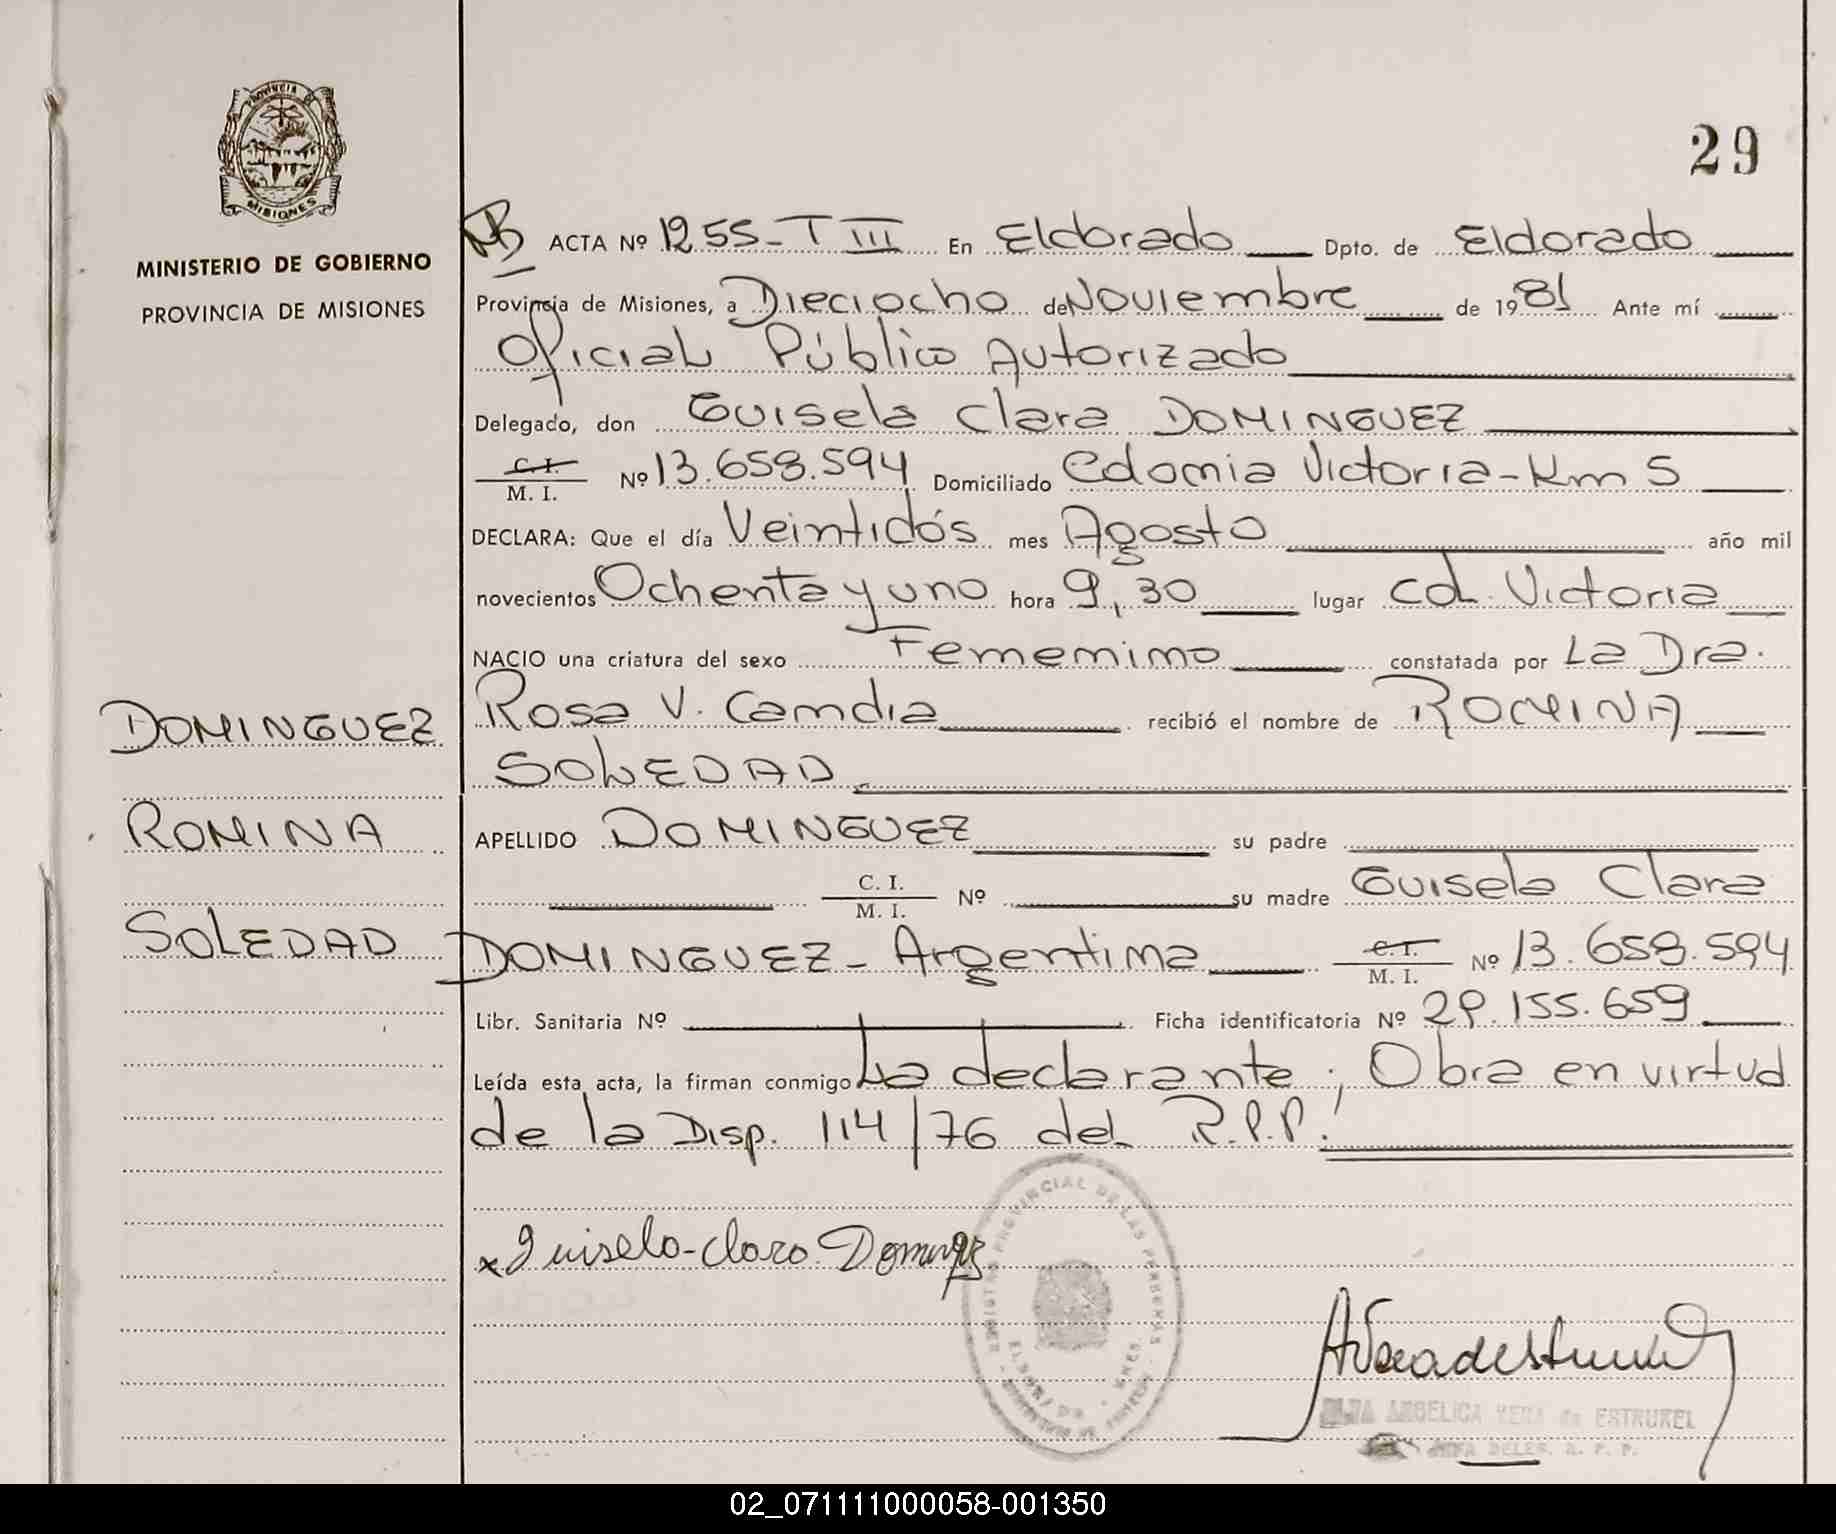 29
PROVINCIA DE
MISIONES
MINISTERIO DE GOBIERNO
PROVINCIA DE MISIONES
ACTA Nº 1255-T III En Eldorado Dpto. de Eldorado
Provincia de Misiones, a Dieciocho de Noviembre de 1981 Ante mí
Oficial Público Autorizado
Delegado, don Guisela Clara DOMINGUEZ
C. I. / M. I. Nº 13.658.594 Domiciliado Colonia Victoria-Km 5
DECLARA: Que el día Veintidós mes Agosto año mil
novecientos Ochenta y uno hora 9,30 lugar Col. Victoria
NACIO una criatura del sexo Femenino constatada por La Dra.
Rosa V. Candia recibió el nombre de ROMINA
SOLEDAD
APELLIDO DOMINGUEZ su padre
C. I. / M. I. Nº su madre Guisela Clara
DOMINGUEZ - Argentina C. I. / M. I. Nº 13.658.594
Libr. Sanitaria Nº Ficha identificatoria Nº 29.155.659
Leída esta acta, la firman conmigo La declarante; Obra en virtud
de la Disp. 114/76 del R.P.P.!
DOMINGUEZ
ROMINA
SOLEDAD
x Guisela-Clara Dominguez
REGISTRO PROVINCIAL DE LAS PERSONAS
ELDORADO
ANGELICA VERA de ESTRUKEL
R. P. P.
02_071111000058-001350